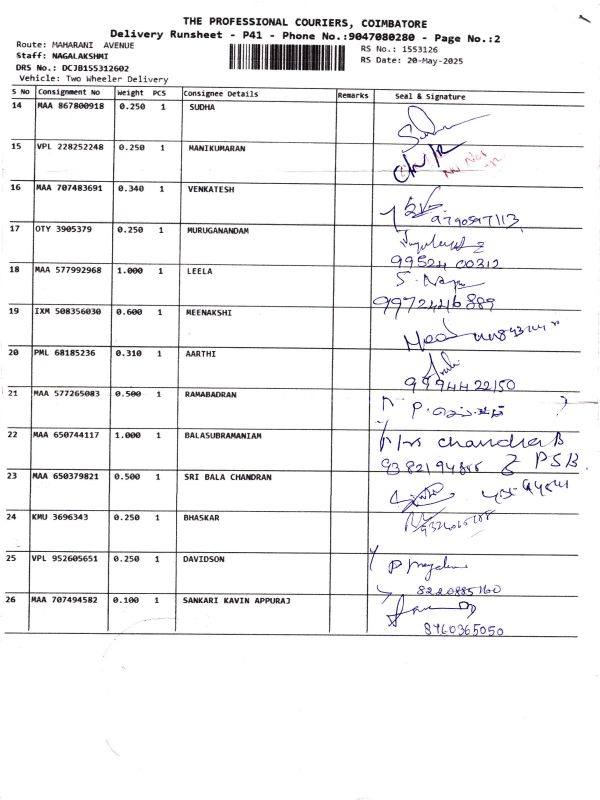 THE PROFESSIONAL COURIERS, COIMBATORE
Delivery Runsheet - P41 - Phone No.:9047080280 - Page No.:2
Route: MAHARANI AVENUE
RS No.: 1553126
Staff: NAGALAKSHMI
RS Date: 20-May-2025
DRS No.: DCJB155312602
Vehicle: Two Wheeler Delivery
S No Consignment No Weight PCS Consignee Details Remarks Seal & Signature
14 MAA 867800918 0.250 1 SUDHA
15 VPL 228252248 0.250 1 MANIKUMARAN
16 MAA 707483691 0.340 1 VENKATESH
9790597113
17 OTY 3905379 0.250 1 MURUGANANDAM
99524 00312
18 MAA 577992968 1.000 1 LEELA
9972446889
19 IXM 508356030 0.600 1 MEENAKSHI
20 PML 68185236 0.310 1 AARTHI
9994422150
21 MAA 577265083 0.500 1 RAMABADRAN
22 MAA 650744117 1.000 1 BALASUBRAMANIAM
chandra B
PSB
23 MAA 650379821 0.500 1 SRI BALA CHANDRAN
24 KMU 3696343 0.250 1 BHASKAR
25 VPL 952605651 0.250 1 DAVIDSON
8220885160
26 MAA 707494582 0.100 1 SANKARI KAVIN APPURAJ
8760365050